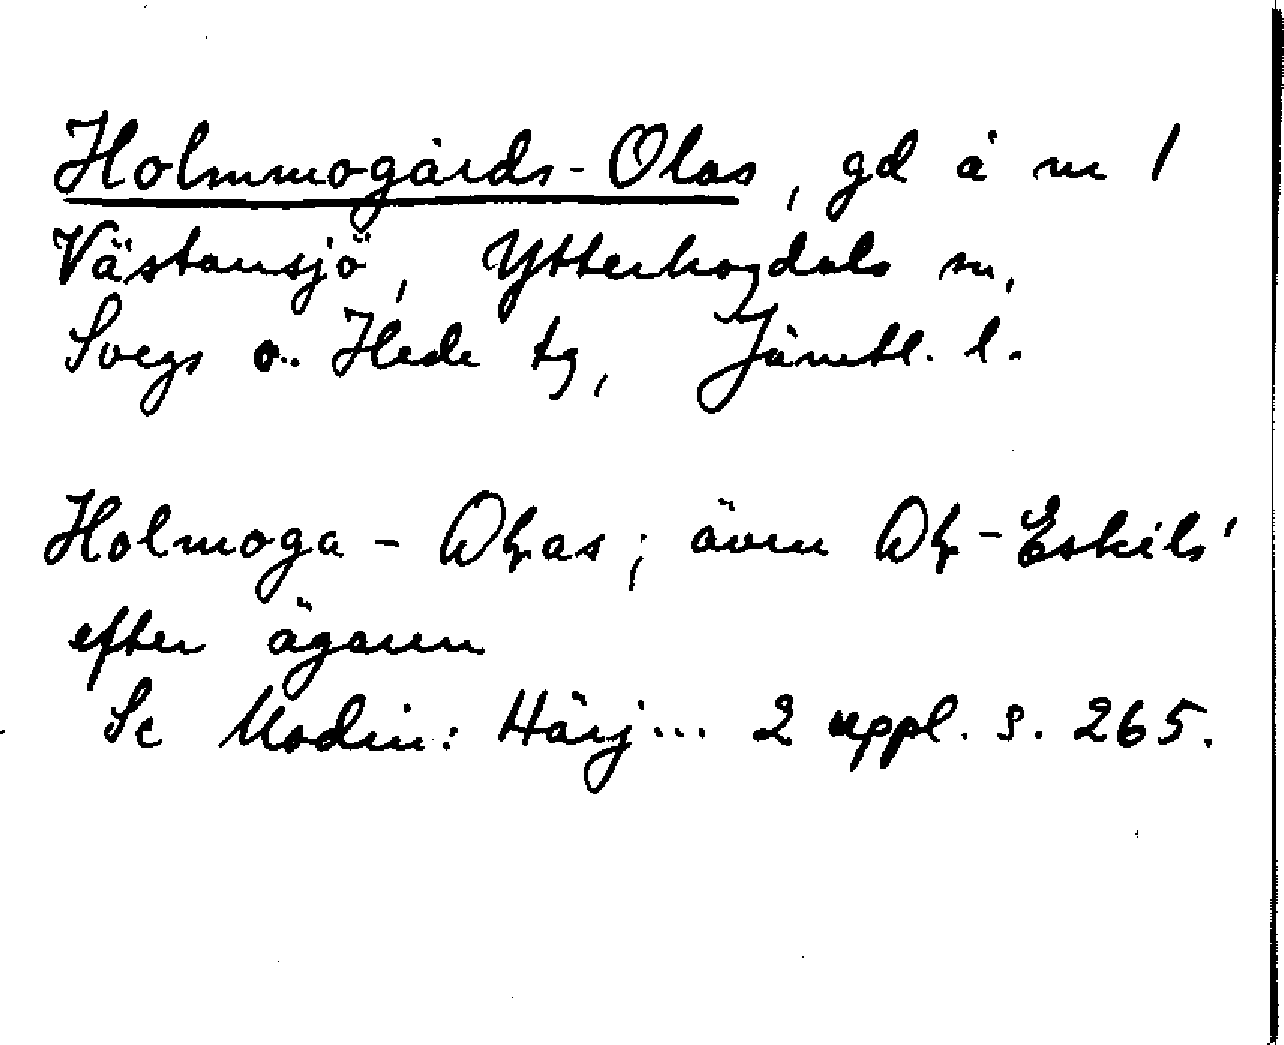 Holmmogårds-Olas, gd å nr 1
Västansjö, Ytterhogdals sn,
Svegs o. Hede tg, Jämtl. l.
Holmoga - as; även -Eskils'
efter ägaren
Se Modin: Härj... 2 uppl. s. 265.